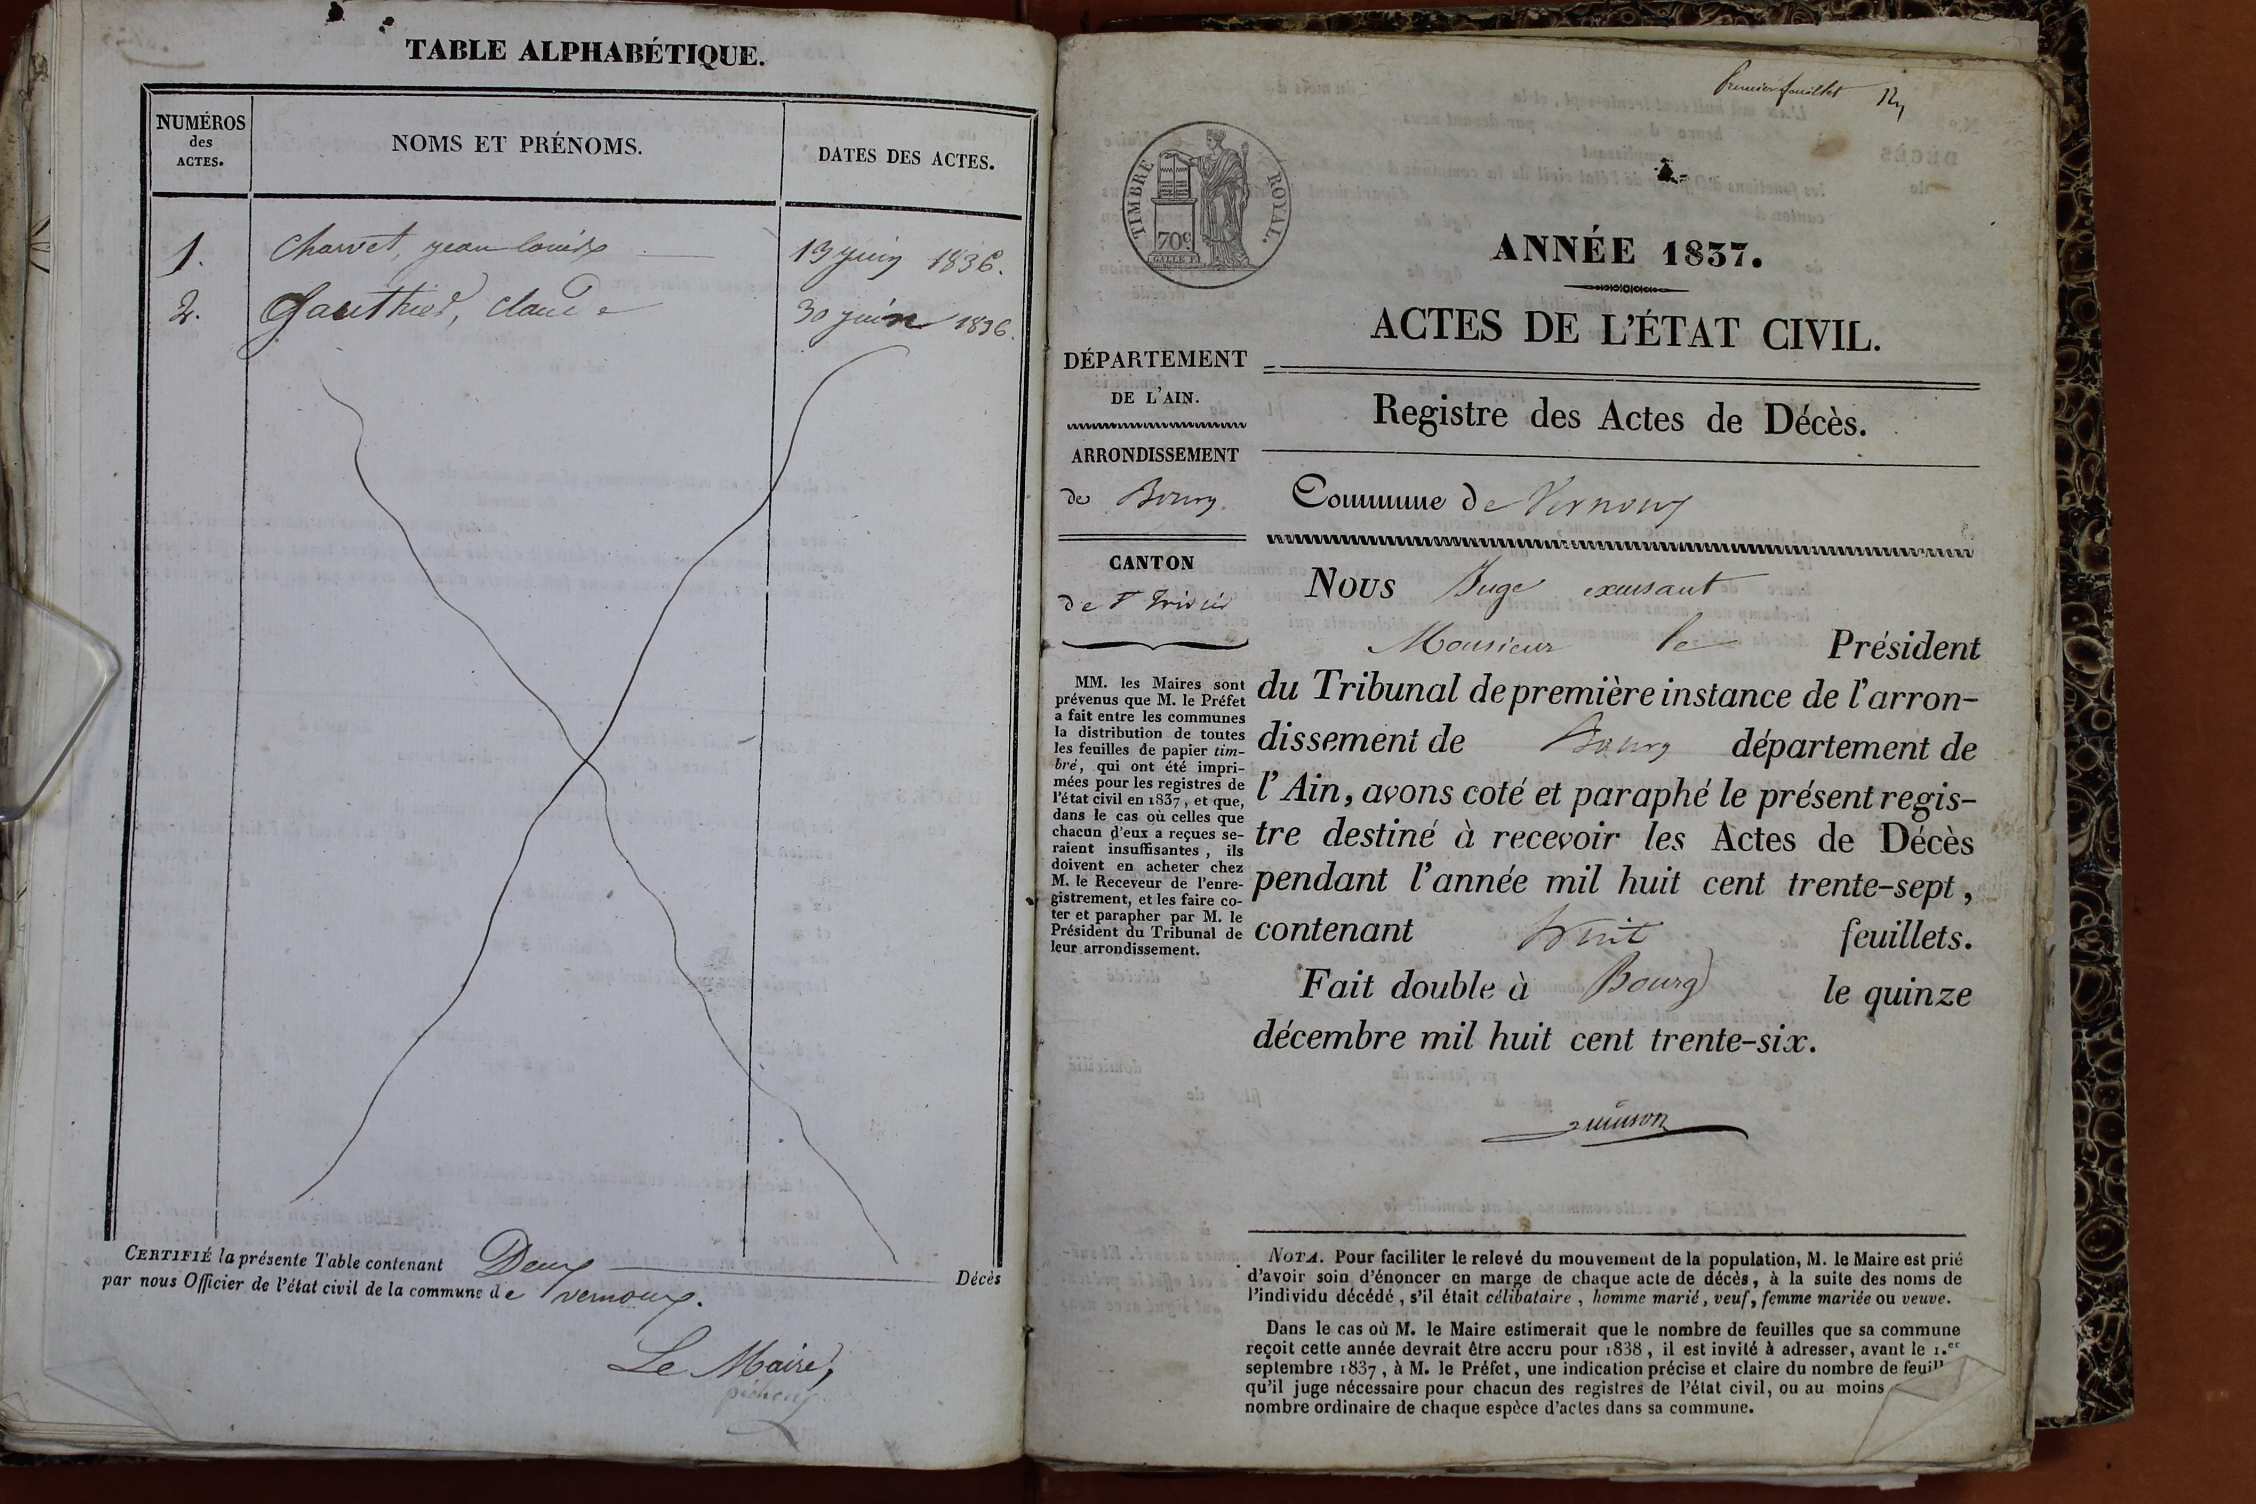 TABLE ALPHABÉTIQUE.
NUMÉROS
des
ACTES.
NOMS ET PRÉNOMS.
DATES DES ACTES.
1. Charvet, jean louis 13 juin 1836.
2. Gauthier, claude 30 juin 1836.
CERTIFIÉ la présente Table contenant Deux Décès
par nous Officier de l'état civil de la commune de vernoux.
Le Maire,
Premier feuillet
TIMBRE ROYAL.
70c
ANNÉE 1837.
ACTES DE L'ÉTAT CIVIL.
DÉPARTEMENT
DE L'AIN.
ARRONDISSEMENT
de Bourg.
CANTON
de St Trivier
MM. les Maires sont
prévenus que M. le Préfet
a fait entre les communes
la distribution de toutes
les feuilles de papier tim-
bré, qui ont été impri-
mées pour les registres de
l'état civil en 1837, et que,
dans le cas où celles que
chacun d'eux a reçues se-
raient insuffisantes, ils
doivent en acheter chez
M. le Receveur de l'enre-
gistrement, et les faire co-
ter et parapher par M. le
Président du Tribunal de
leur arrondissement.
Registre des Actes de Décès.
Commune de Vernoux
Nous Juge exerçant
Monsieur le Président
du Tribunal de première instance de l'arron-
dissement de Bourg département de
l'Ain, avons coté et paraphé le présent regis-
tre destiné à recevoir les Actes de Décès
pendant l'année mil huit cent trente-sept,
contenant huit feuillets.
Fait double à Bourg le quinze
décembre mil huit cent trente-six.
NOTA. Pour faciliter le relevé du mouvement de la population, M. le Maire est prié
d'avoir soin d'énoncer en marge de chaque acte de décès, à la suite des noms de
l'individu décédé, s'il était célibataire, homme marié, veuf, femme mariée ou veuve.
Dans le cas où M. le Maire estimerait que le nombre de feuilles que sa commune
reçoit cette année devrait être accru pour 1838, il est invité à adresser, avant le 1.er
septembre 1837, à M. le Préfet, une indication précise et claire du nombre de feuill
qu'il juge nécessaire pour chacun des registres de l'état civil, ou au moins
nombre ordinaire de chaque espèce d'actes dans sa commune.